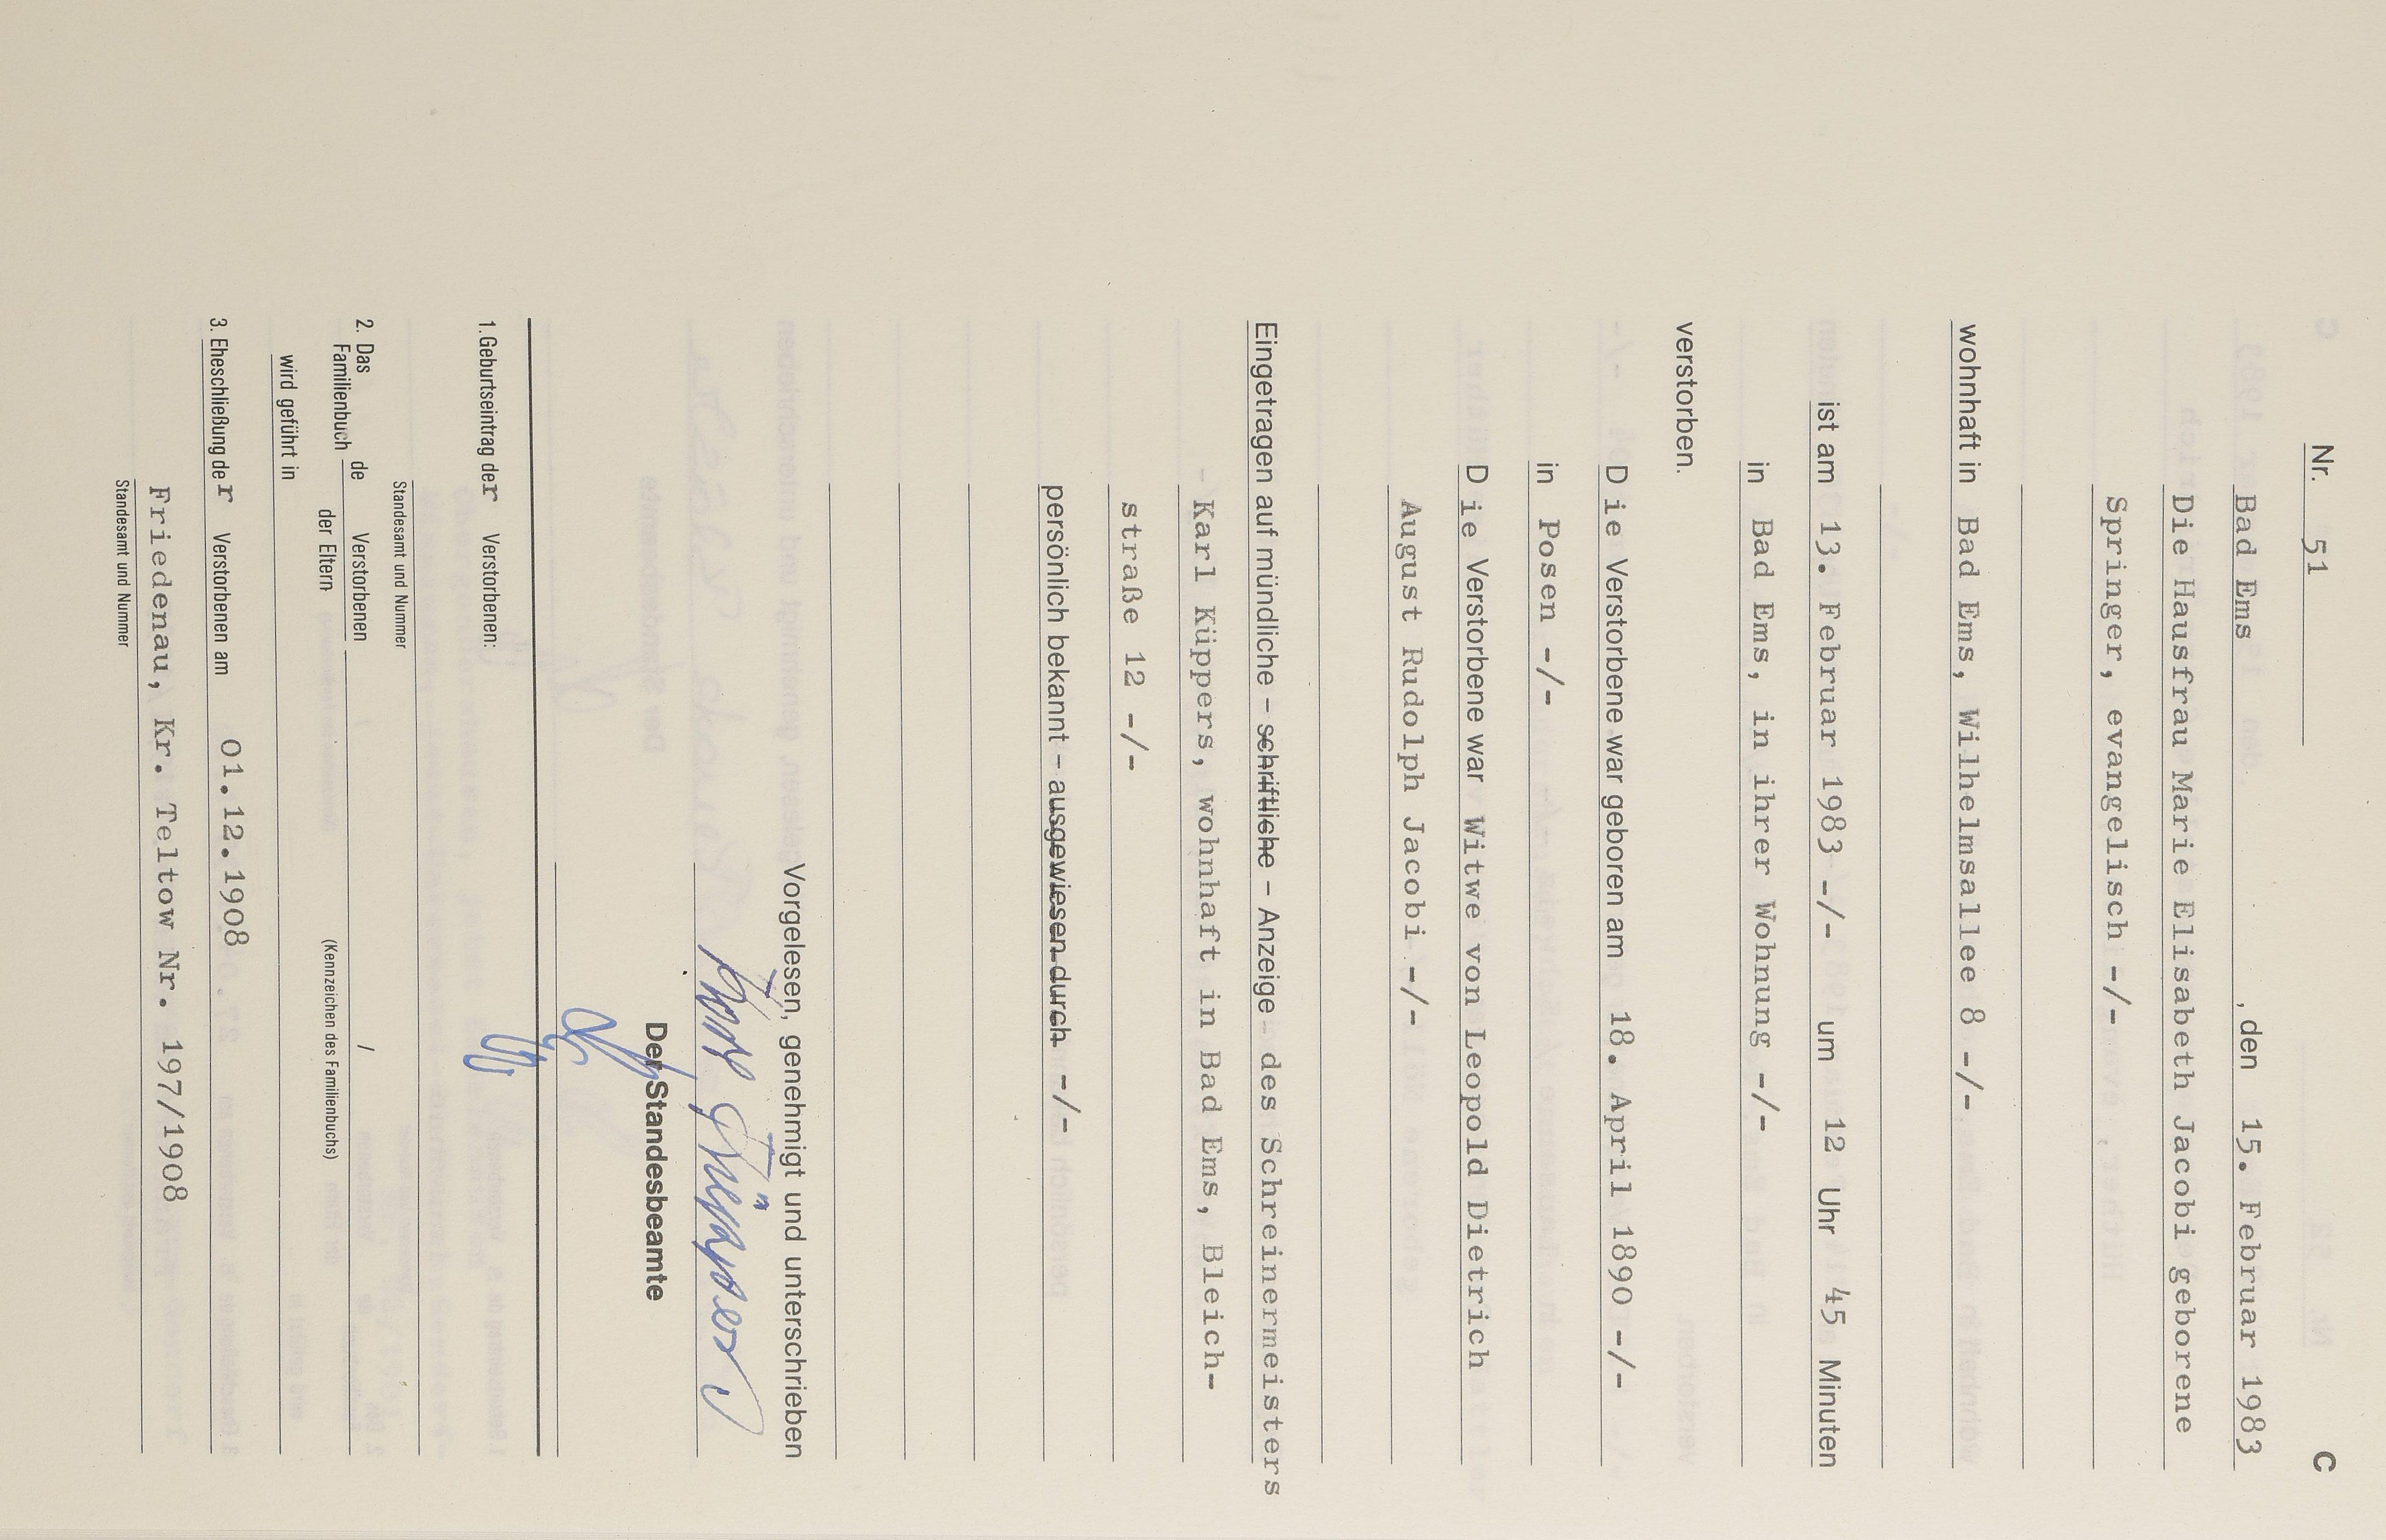 Nr. 51 C
Bad Ems , den 15. Februar 1983
Die Hausfrau Marie Elisabeth Jacobi geborene
Springer, evangelisch -/-
wohnhaft in Bad Ems, Wilhelmsallee 8 -/-
ist am 13. Februar 1983 -/- um 12 Uhr 45 Minuten
in Bad Ems, in ihrer Wohnung -/-
verstorben.
Die Verstorbene war geboren am 18. April 1890 -/-
in Posen -/-
Die Verstorbene war Witwe von Leopold Dietrich
August Rudolph Jacobi -/-
Eingetragen auf mündliche – schriftliche – Anzeige des Schreinermeisters
Karl Küppers, wohnhaft in Bad Ems, Bleich-
straße 12 -/-
persönlich bekannt – ausgewiesen durch -/-
Vorgelesen, genehmigt und unterschrieben
Karl Küppers
Der Standesbeamte
1. Geburtseintrag der Verstorbenen:
Standesamt und Nummer
2. Das Familienbuch de Verstorbenen der Eltern /
(Kennzeichen des Familienbuchs)
wird geführt in
3. Eheschließung der Verstorbenen am 01.12.1908
Friedenau, Kr. Teltow Nr. 197/1908
Standesamt und Nummer